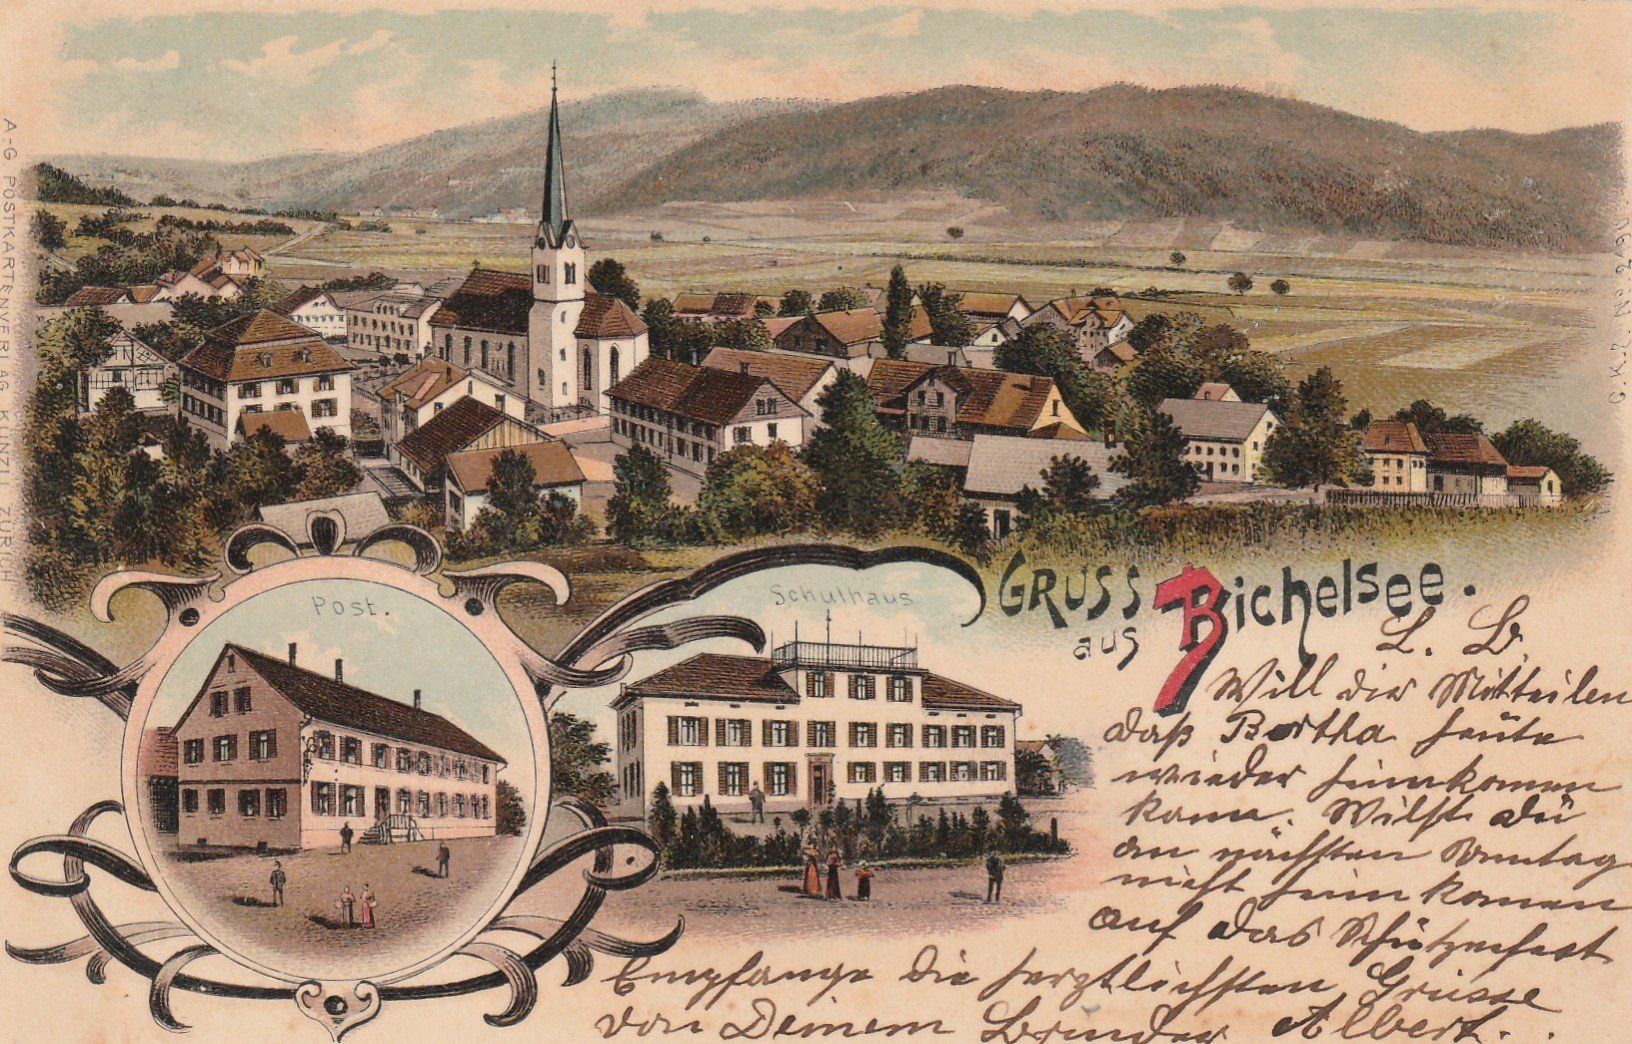 A.-G. POSTKARTENVERLAG KÜNZLI, ZÜRICH
Post.
Schulhaus
GRUSS
aus Bichelsee.
L. B.
Will dir Mitteilen
daß Bertha heute
wieder heimkomen
kann. Wilst du
an nächsten Sontag
nicht heim komen
auf das Schützenfest
Empfange die herzlichsten Grüsse
von Deinem Bruder Albert.